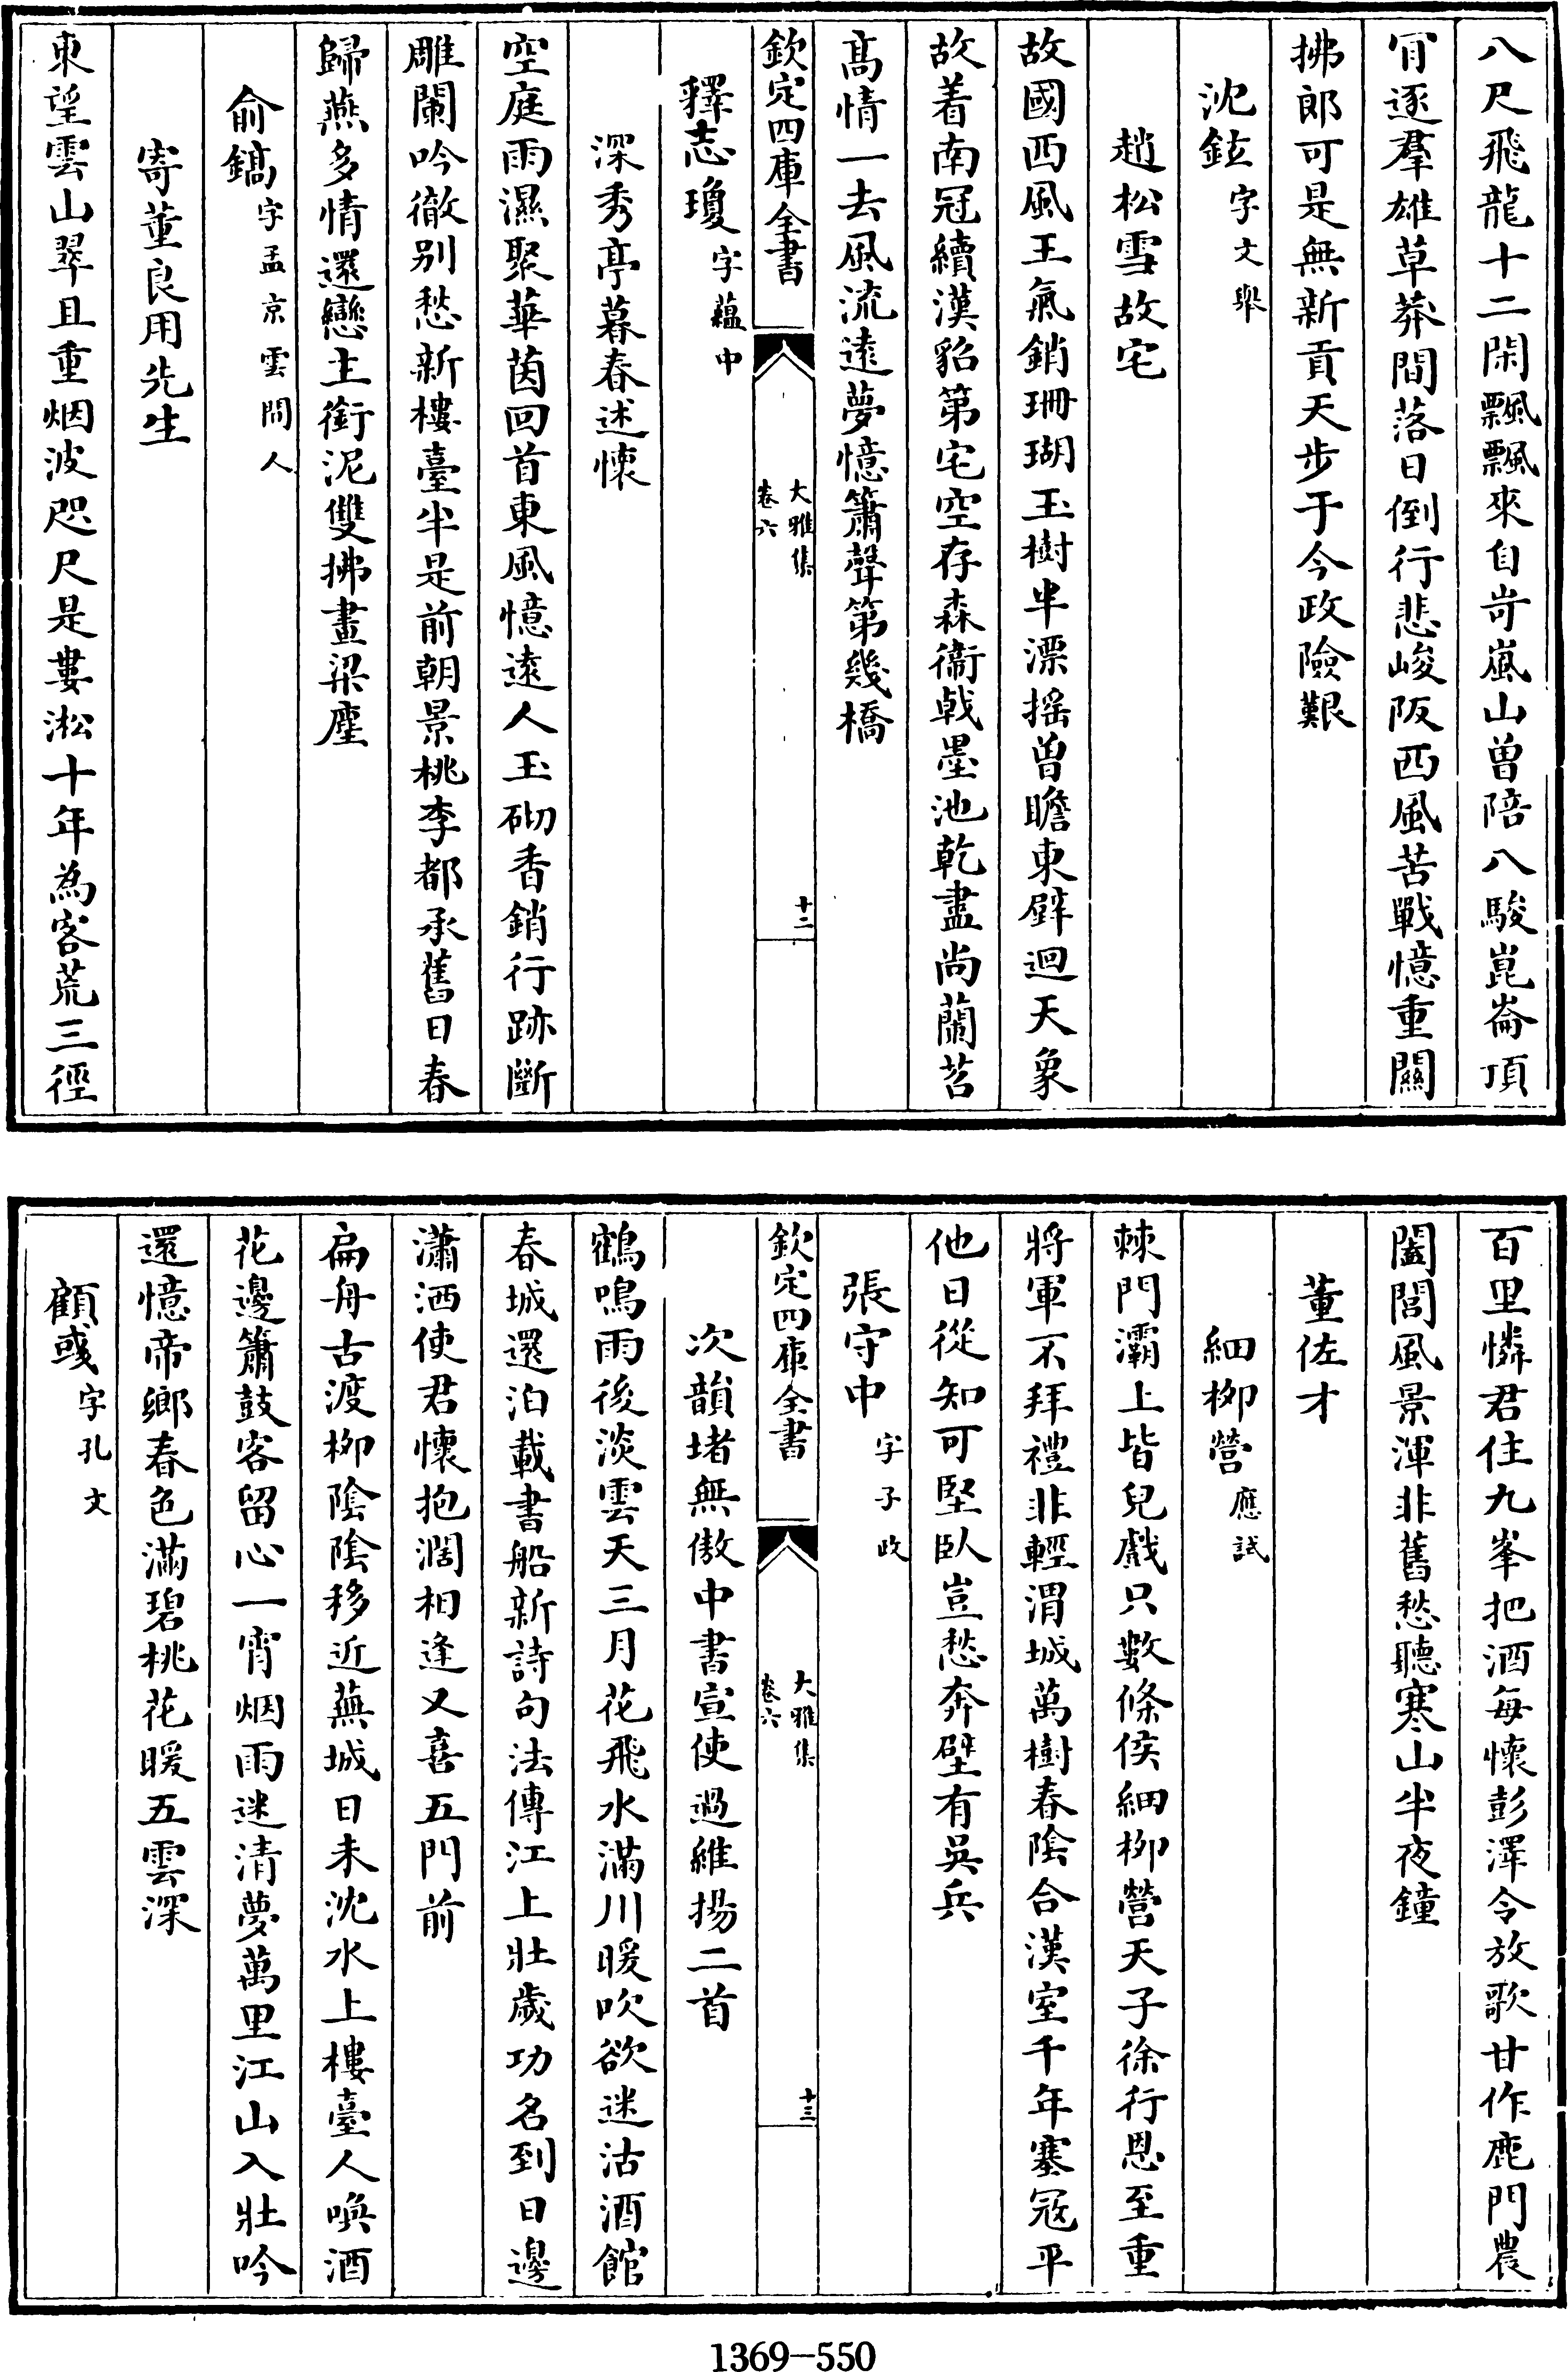 八尺飛龍十二閑飄飄來自岢嵐山曽陪八駿崑崙頂
肎逐羣雄草莽間落日倒行悲峻阪西風苦戰憶重關
拂郎可是無新貢天步于今政險艱
沈鉉字文舉
趙松雪故宅
故國西風王氣銷珊瑚玉樹半漂搖曽瞻東壁迴天象
故着南冠續漢貂第宅空存森衞戟墨池乾盡尚蘭苕
髙情一去風流逺夢憶簫聲第幾橋
欽定四庫全書
大雅集
卷六
十二
釋志瓊字藴中
深秀亭暮春述懷
空庭雨濕聚華茵回首東風憶逺人玉砌香銷行跡斷
雕闌吟徹别愁新樓臺半是前朝景桃李都承舊日春
歸燕多情還戀主銜泥雙拂畫梁塵
俞鎬字孟京雲間人
寄董良用先生
東望雲山翠且重烟波咫尺是婁淞十年為客荒三徑
百里憐君住九峯把酒每懷彭澤令放歌甘作鹿門農
闔閭風景渾非舊愁聽寒山半夜鐘
董佐才
細栁營應試
棘門灞上皆兒戲只數條侯細栁營天子徐行恩至重
將軍不拜禮非輕渭城萬樹春隂合漢室千年塞冦平
他日從知可堅臥豈愁奔壁有吳兵
張守中字子政
欽定四庫全書
大雅集
卷六
十三
次韻堵無傲中書宣使過維揚二首
鶴鳴雨後淡雲天三月花飛水滿川暖吹欲迷沽酒館
春城還泊載書船新詩句法傳江上壯歲功名到日邊
瀟洒使君懷抱濶相逢又喜五門前
扁舟古渡栁隂隂移近蕪城日未沈水上樓臺人喚酒
花邊簫鼓客留心一宵烟雨迷清夢萬里江山入壯吟
還憶帝鄉春色滿碧桃花暖五雲深
顧彧字孔文
1369—550